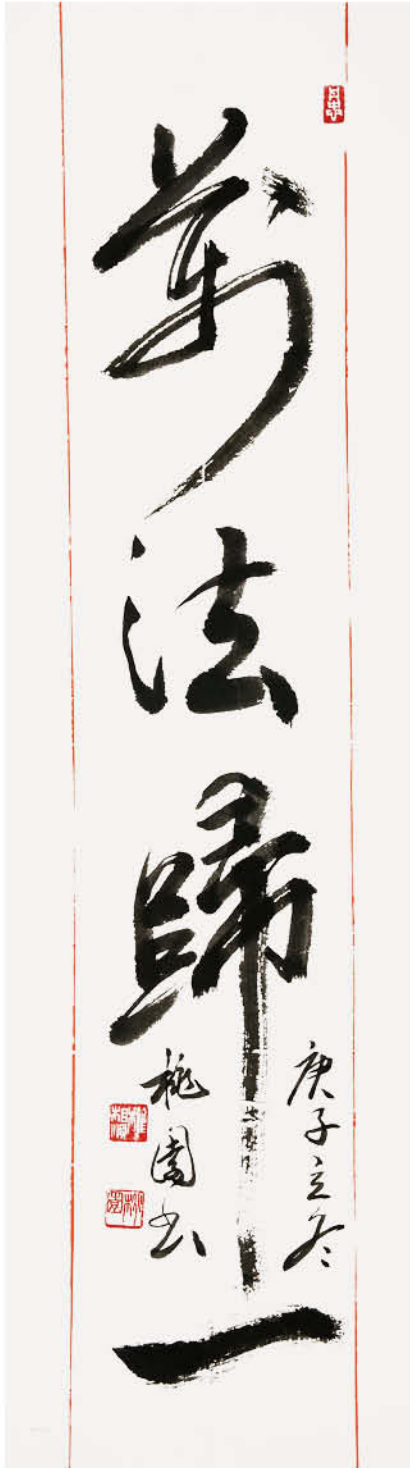 萬法歸一
庚子立冬
桃園书